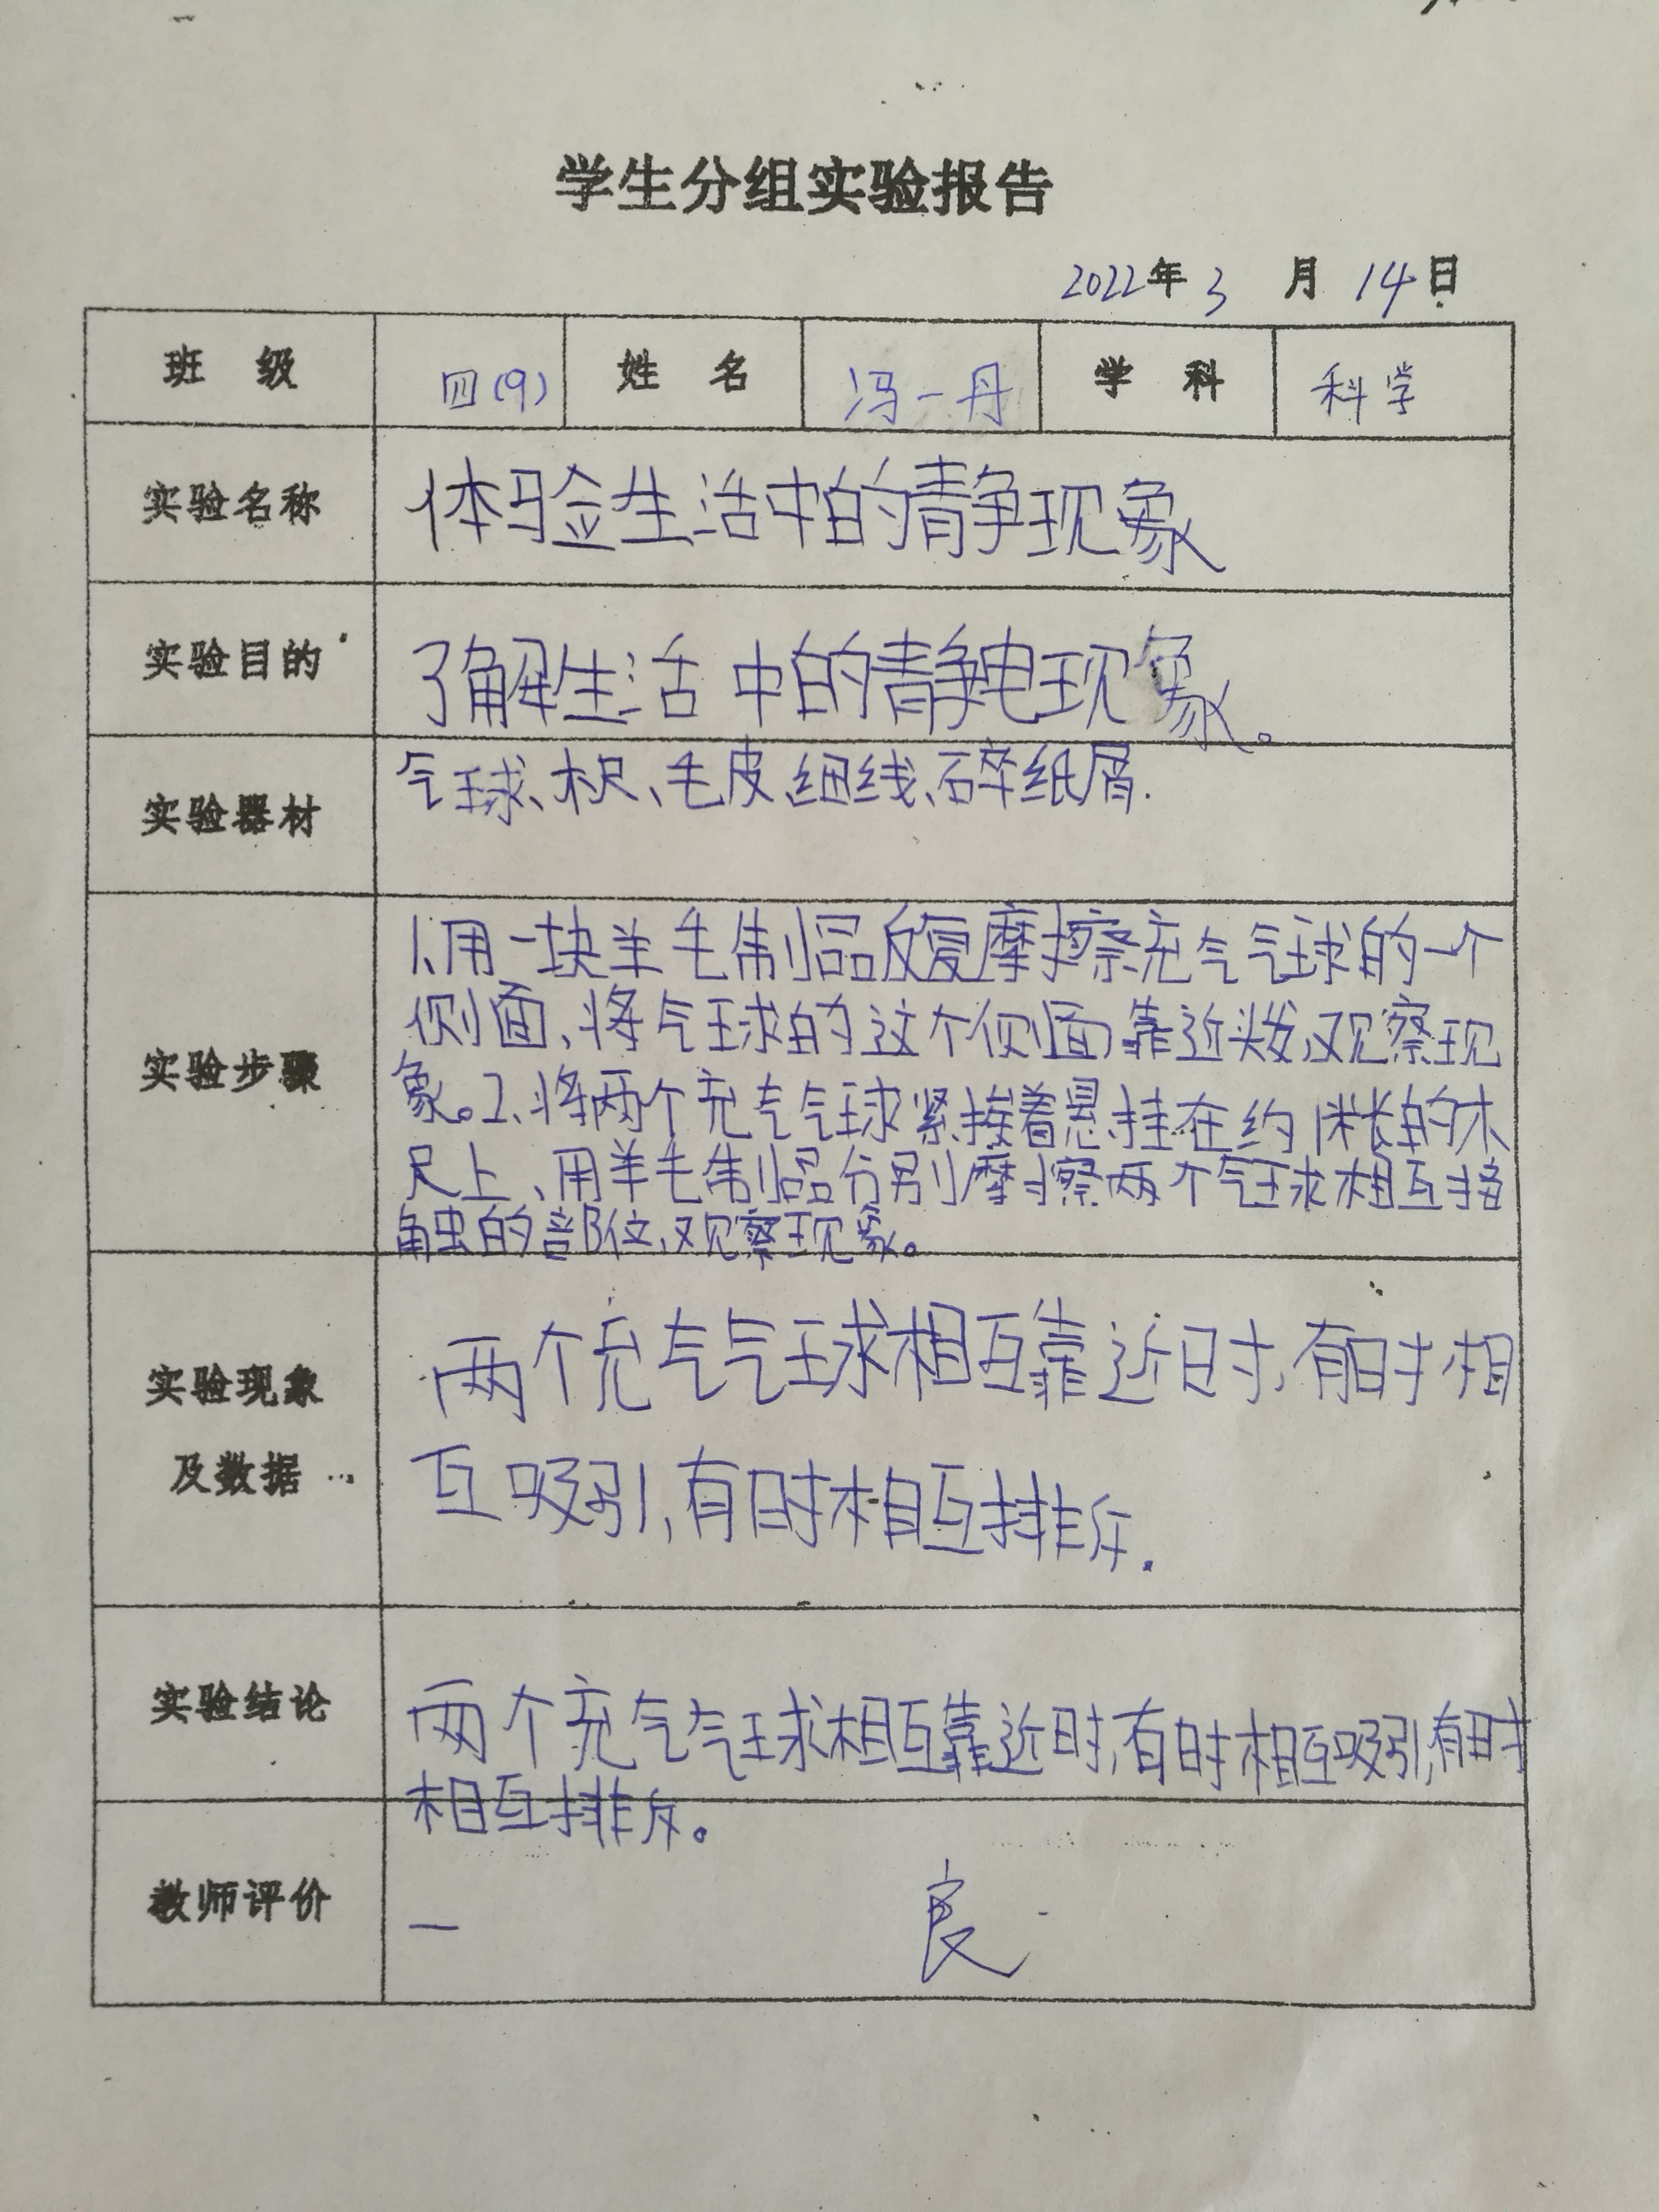 学生分组实验报告
2022年3月14日
班级 四(9) 姓名 冯一丹 学科 科学
实验名称 体验生活中的静现象
实验目的 了解生活中的静电现象。
实验器材 气球、木尺、毛皮、细线、碎纸屑.
实验步骤
1、用一块羊毛制品反复摩擦充气气球的一个
侧面、将气球的这个侧面靠近头发,观察现
象。2、将两个充气气球紧挨着悬挂在约1米长的木
尺上、用羊毛制品分别摩擦两个气球相互接
触的部位,观察现象。
实验现象
及数据
两个充气气球相互靠近时,有时相
互吸引,有时相互排斥.
实验结论
两个充气气球相互靠近时,有时相互吸引,有时
相互排斥。
教师评价 一 良